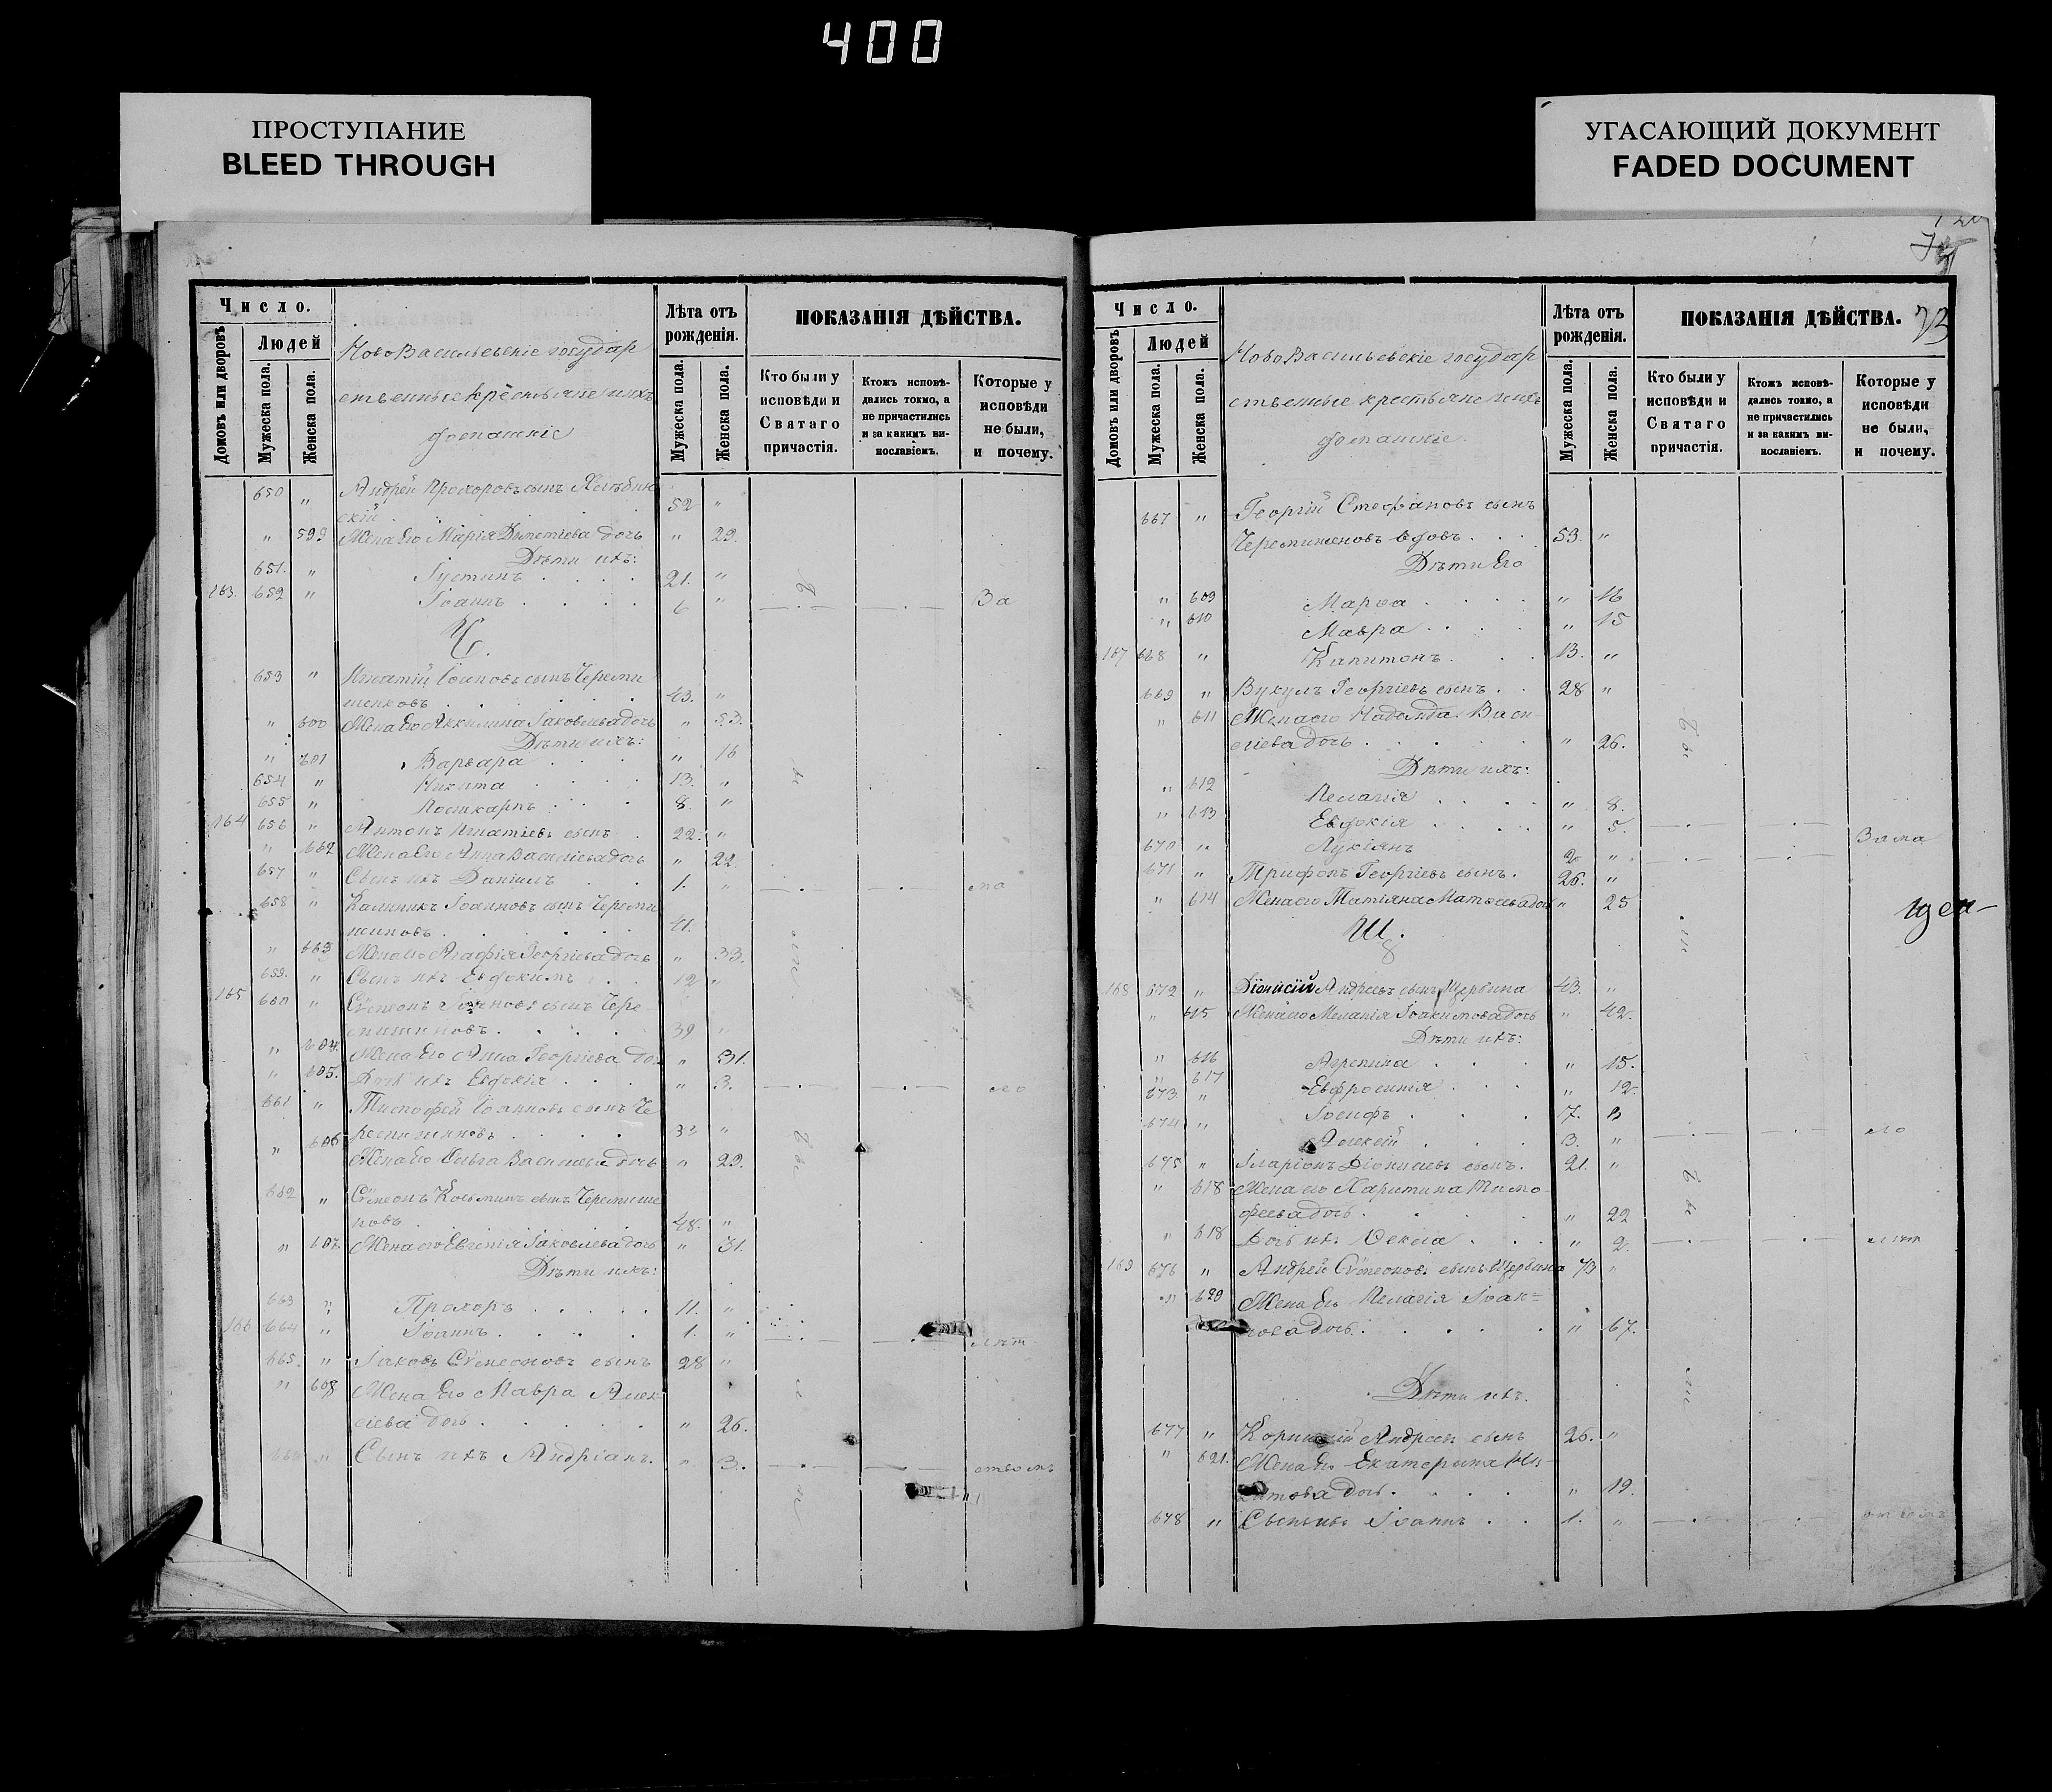 400
ПРОСТУПАНИЕ
BLEED THROUGH
УГАСАЮЩИЙ ДОКУМЕНТ
FADED DOCUMENT
Число.
Людей
Домовъ или дворовъ
Мужеска пола.
Женска пола.
НовоВасильевскіе государ
ственные крестьяне
Лѣта отъ
рожденія.
Мужеска пола.
Женска пола.
ПОКАЗАНІЯ ДѢЙСТВА.
Кто были у
исповѣди и
Святаго
причастія.
Ктожъ исповѣ-
дались токмо, а
не причастились
и за какимъ ви-
нословіемъ.
Которые у
исповѣди
не были,
и почему.
650 " Андрей Прохоровъ сынъ
скій 52 "
" 599 Жена Его Марія Дометіева дочь " 29.
Дѣти ихъ:
651. " Іустинъ 21. "
163. 652 " Іоаннъ 6 " За
Ч.
653 " Игнатій Іоановъ сынъ Череми
шенковъ 43. "
" 600 Жена Его Акилина Іаковлева дочь "
Дѣти ихъ:
" 601 Варвара " 16
654 " Никита 13. "
655 " Поликарпъ 8. "
164 656 " Антонъ Игнатіевъ сынъ 22. "
" 602 Жена Его Анна Василіева дочь " 22
657 " Сынъ ихъ Даніилъ 1. " ма
658 " Калиникъ Іоанновъ сынъ Череми
шиновъ 41.
" 603 Жена его Агафія Георгіева дочь " 33.
659. " Сынъ ихъ Евдокимъ 12 "
165 660 " Сѷмеонъ Іоанновъ сынъ Чере
мишиновъ 39 "
" 604. Жена Его Анна Георгіева доч " 31.
" 605. Дочь ихъ Евдокія " 3. ло
661 " Тимофей Іоанновъ сынъ Че
ремишиновъ "
" 606 Жена Его Ольга Васильева дочь " 29.
662 " Сѷмеонъ Козьминъ сынъ Черемише
новъ 48. "
" 607. Жена его Евгенія Іаковлева дочь " 31.
Дѣти ихъ:
663 " Прохоръ 11. "
166 664 " Іоаннъ 1. " лѣт
665. " Іаковъ Сѷмеоновъ сынъ 28 "
" 608 Жена Его Мавра Алек
сіева дочь " 26.
666 " Сынъ ихъ Андріанъ. " 3. ствомъ
73
Число.
Людей
Домовъ или дворовъ
Мужеска пола.
Женска пола.
НовоВасильевскіе государ
ственные крестьяне
Лѣта отъ
рожденія.
Мужеска пола.
Женска пола.
ПОКАЗАНІЯ ДѢЙСТВА.
Кто были у
исповѣди и
Святаго
причастія.
Ктожъ исповѣ-
дались токмо, а
не причастились
и за какимъ ви-
нословіемъ.
Которые у
исповѣди
не были,
и почему.
667 " Георгій Стефановъ сынъ
Черемишеновъ вдовъ 53. "
Дѣти Его
" 609 Марѳа " 16
" 610 Мавра " 15
167 668 " Капитонъ 13. "
669 " Вукулъ Георгіевъ сынъ 28 "
" 611 Жена его Надежда Васи
ліева дочь " 26.
Дѣти ихъ:
" 612 Пелагія " 8.
" 613 Евдокія " 5.
670 " Лукіянъ 2 " За ма
671 " Трифонъ Георгіевъ сынъ 26. "
" 614 Жена его Татіяна Матѳеева дочь " 25
Щ.
168 672 " Діонисій Андреевъ сынъ Щербина 43. "
" 615 Жена его Меланія Іоакимова дочь " 42.
Дѣти ихъ:
" 616 Агрепина " 15.
" 617 Евфросинія " 12.
673. " Іосифъ 7.
674 " Алексій 3. " ло
675 " Іларіонъ Діонисіевъ сынъ. 21. "
" 618 Жена его Харитина Тимо
феева дочь " 22
" 618 Дочь ихъ Ѳекла " 2. лѣт
169 676 " Андрей Сѷмеоновъ сынъ Щербина 73 "
" 620 Жена Его Пелагія Іоан=
нова дочь " 67.
Дѣти ихъ.
677 " Корнилій Андреевъ сынъ 26. "
" 621. Жена Его Екатерина Ни
китова дочь " 19.
678 " Сынъ ихъ Іоаннъ 1. "